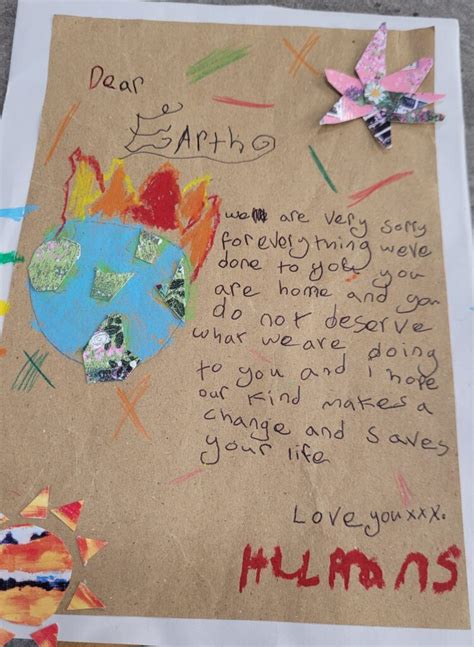 Dear
Earth
we are very sorry
for everything we've
done to you you
are home and you
do not deserve
what we are doing
to you and I hope
our kind makes a
change and saves
your life
Love you xxx.
HUMANS